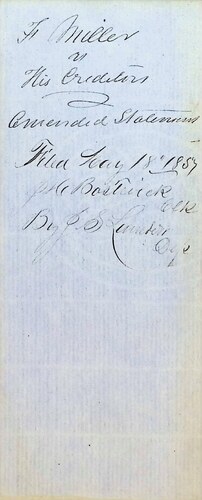 F Miller
vs
His Creditors
Amended Statement
Filed May 18th 1857
Bostwick
Clk
By J. S.
Dep